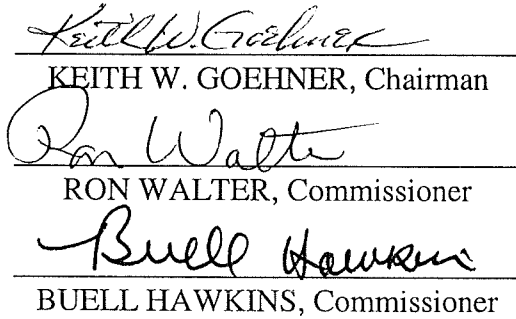 Keith W. Goehner
KEITH W. GOEHNER, Chairman
Ron Walter
RON WALTER, Commissioner
Buell Hawkins
BUELL HAWKINS, Commissioner